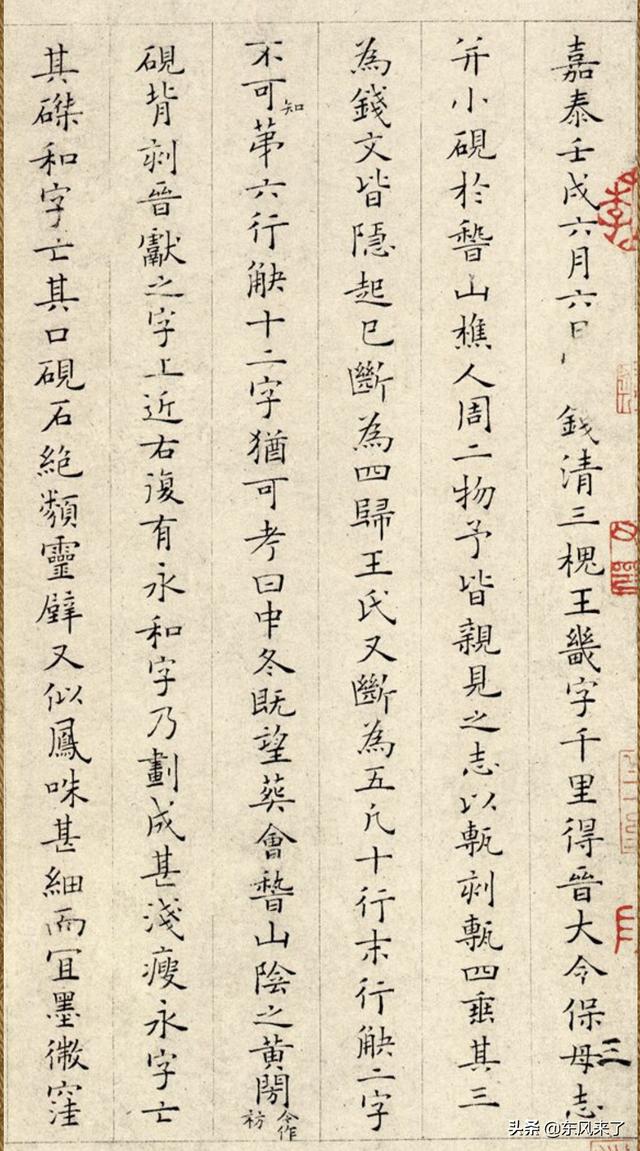 嘉泰壬戌六月六日 錢清三槐王畿字千里得晉大令保母志
并小硯於嵇山樵人周二物予皆親見之志以甎刻甎四垂其三
為錢文皆隱起已斷為四歸王氏又斷為五凡十行末行缺二字
不可知第六行缺十二字猶可考曰中冬既望葬會嵇山陰之黃閍今作祊
硯背刻晉獻之字上近右復有永和字乃劃成甚淺瘦永字亡
其磔和字亡其口硯石絕類靈壁又似鳳咮甚細而宜墨微窪
三
头条 @东风来了